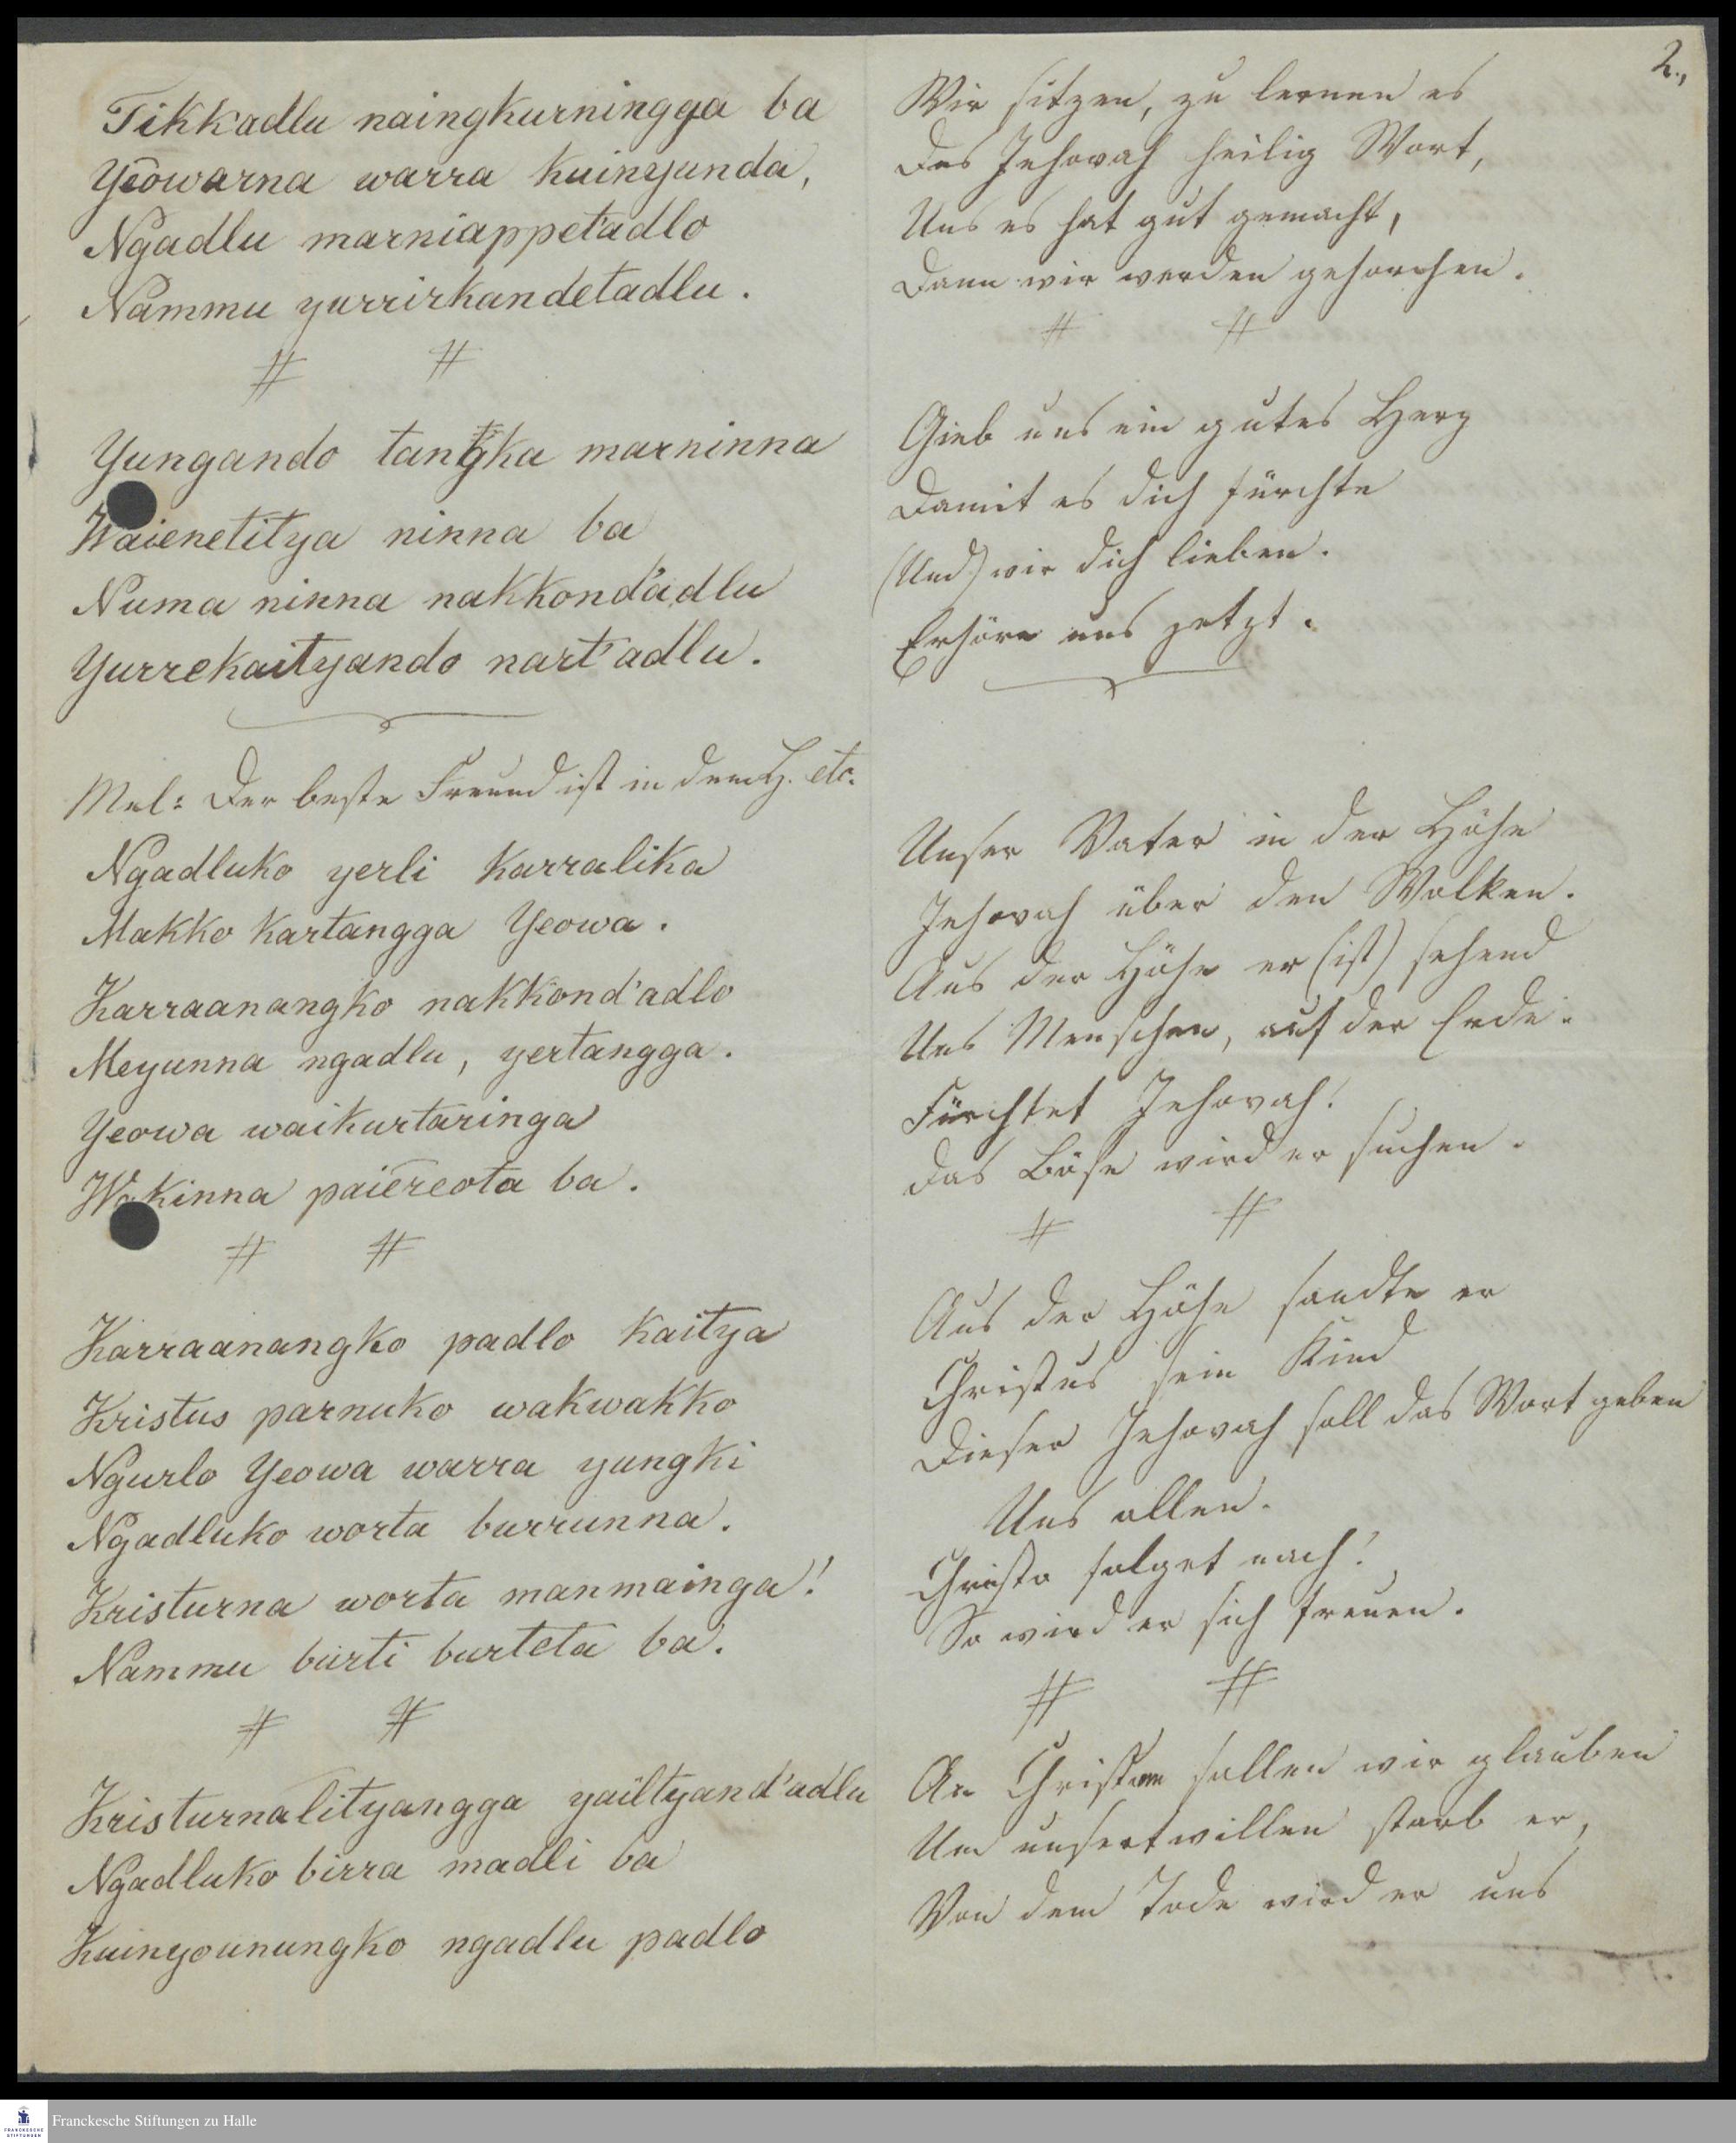 2.,
Tikkadlu naingkurningga ba
Yēowarna warra kuinyunda,
Ngadlu marniappet'adlo
Nammu yurrirkandetadlu.
# #
Yungando tangka marninna
Waienetitya ninna ba
Numa ninna nakkond'adlu
Yurrekaityando nart'adlu.
Mel: Der beste Freund ist in dem H. etc.
Ngadluko yerli karralika
Makko kartangga Yeowa.
Karraanangko nakkond'adlo
Meyunna ngadlu, yertangga.
Yeowa waikurtaringa
Wakinna paiereota ba.
# #
Karraanangko padlo kaitya
Kristus parnuko wakwakko
Ngurlo Yeowa warra yungki
Ngadluko worta burrunna.
Kristurna worta manmainga!
Nammu burti burteta ba.
# #
Kristurnalityangga yailtyand'adlu
Ngadluko birra madli ba
Kuinyounungko ngadlu padlo
Wir sitzen, zu lernen es
Des Jehovah heilig Wort,
Uns es hat gut gemacht,
Dann wir werden gehorchen.
# #
Gieb uns ein gutes Herz
Damit es dich fürchte
(Und) wir dich lieben.
Erhöre uns jetzt.
Unser Vater in der Höhe
Jehovah über den Wolken.
Aus der Höhe er (ist) sehend
Uns Menschen, auf der Erde.
Fürchtet Jehovah!
Das Böse wird er suchen.
# #
Aus der Höhe sandte er
Christus sein Kind
Dieser Jehovah soll das Wort geben
Uns allen.
Christo folget nach!
So wird er sich freuen.
# #
An Christum sollen wir glauben
Um unsertwillen starb er,
Von dem Tode wird er uns
FRANCKESCHE
STIFTUNGEN
Franckesche Stiftungen zu Halle